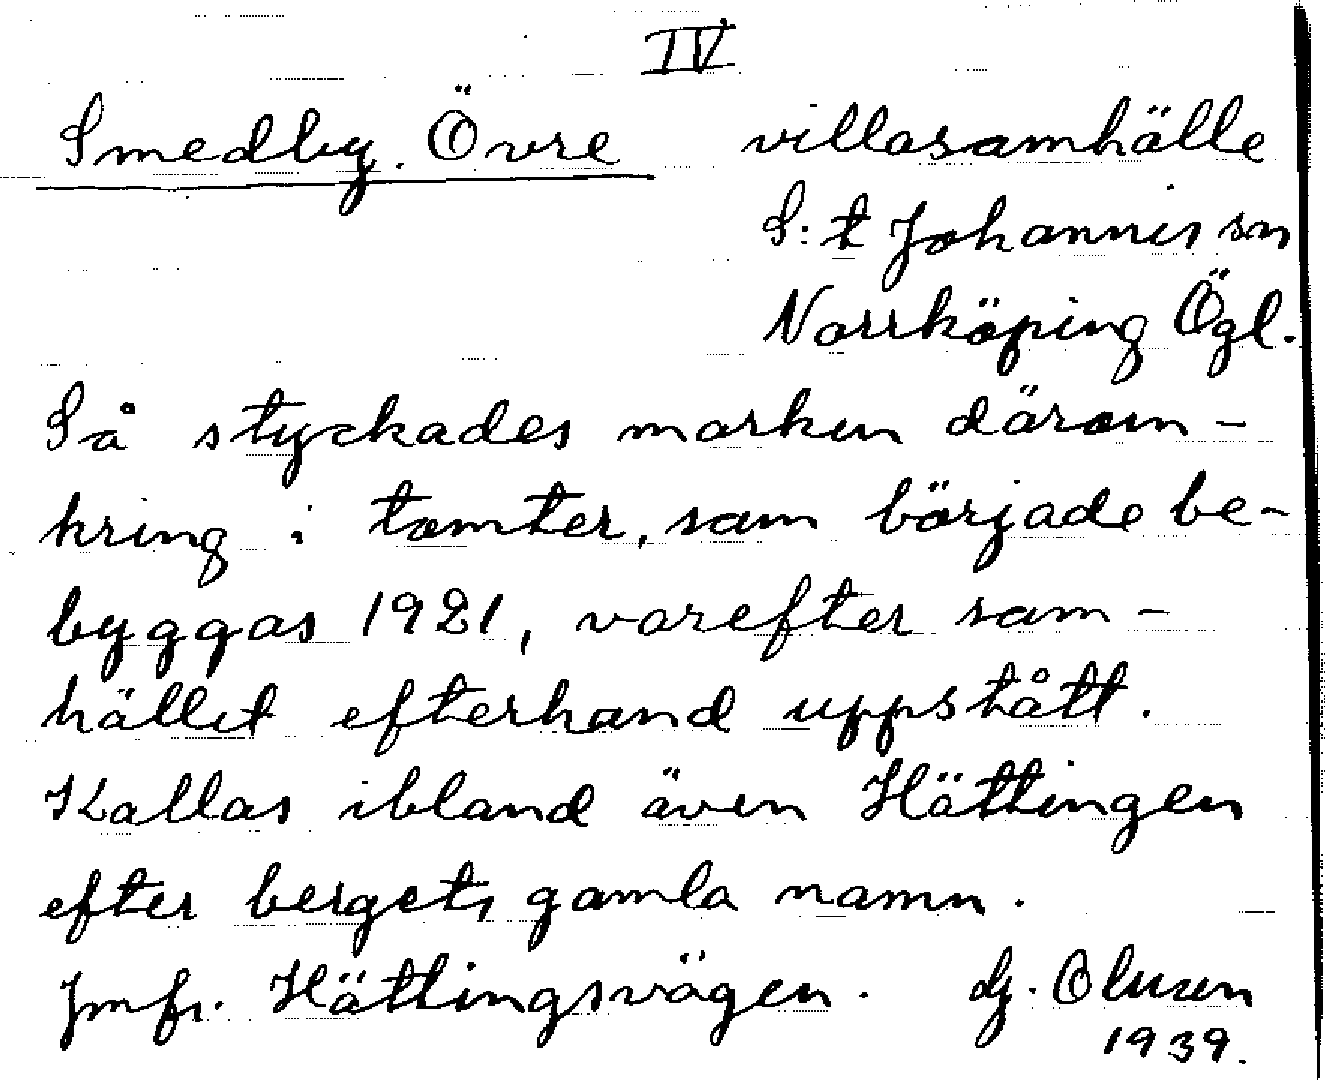 IV
Smedby. Övre villasamhälle
S:t Johannis sn
Norrköping Ögl.
Så styckades marken därom-
kring i tomter, som började be-
byggas 1921, varefter sam-
hället efterhand uppstått.
Kallas ibland även Hättingen
efter bergets gamla namn.
Jmfr. Hättingsvägen. Olusen
1939.